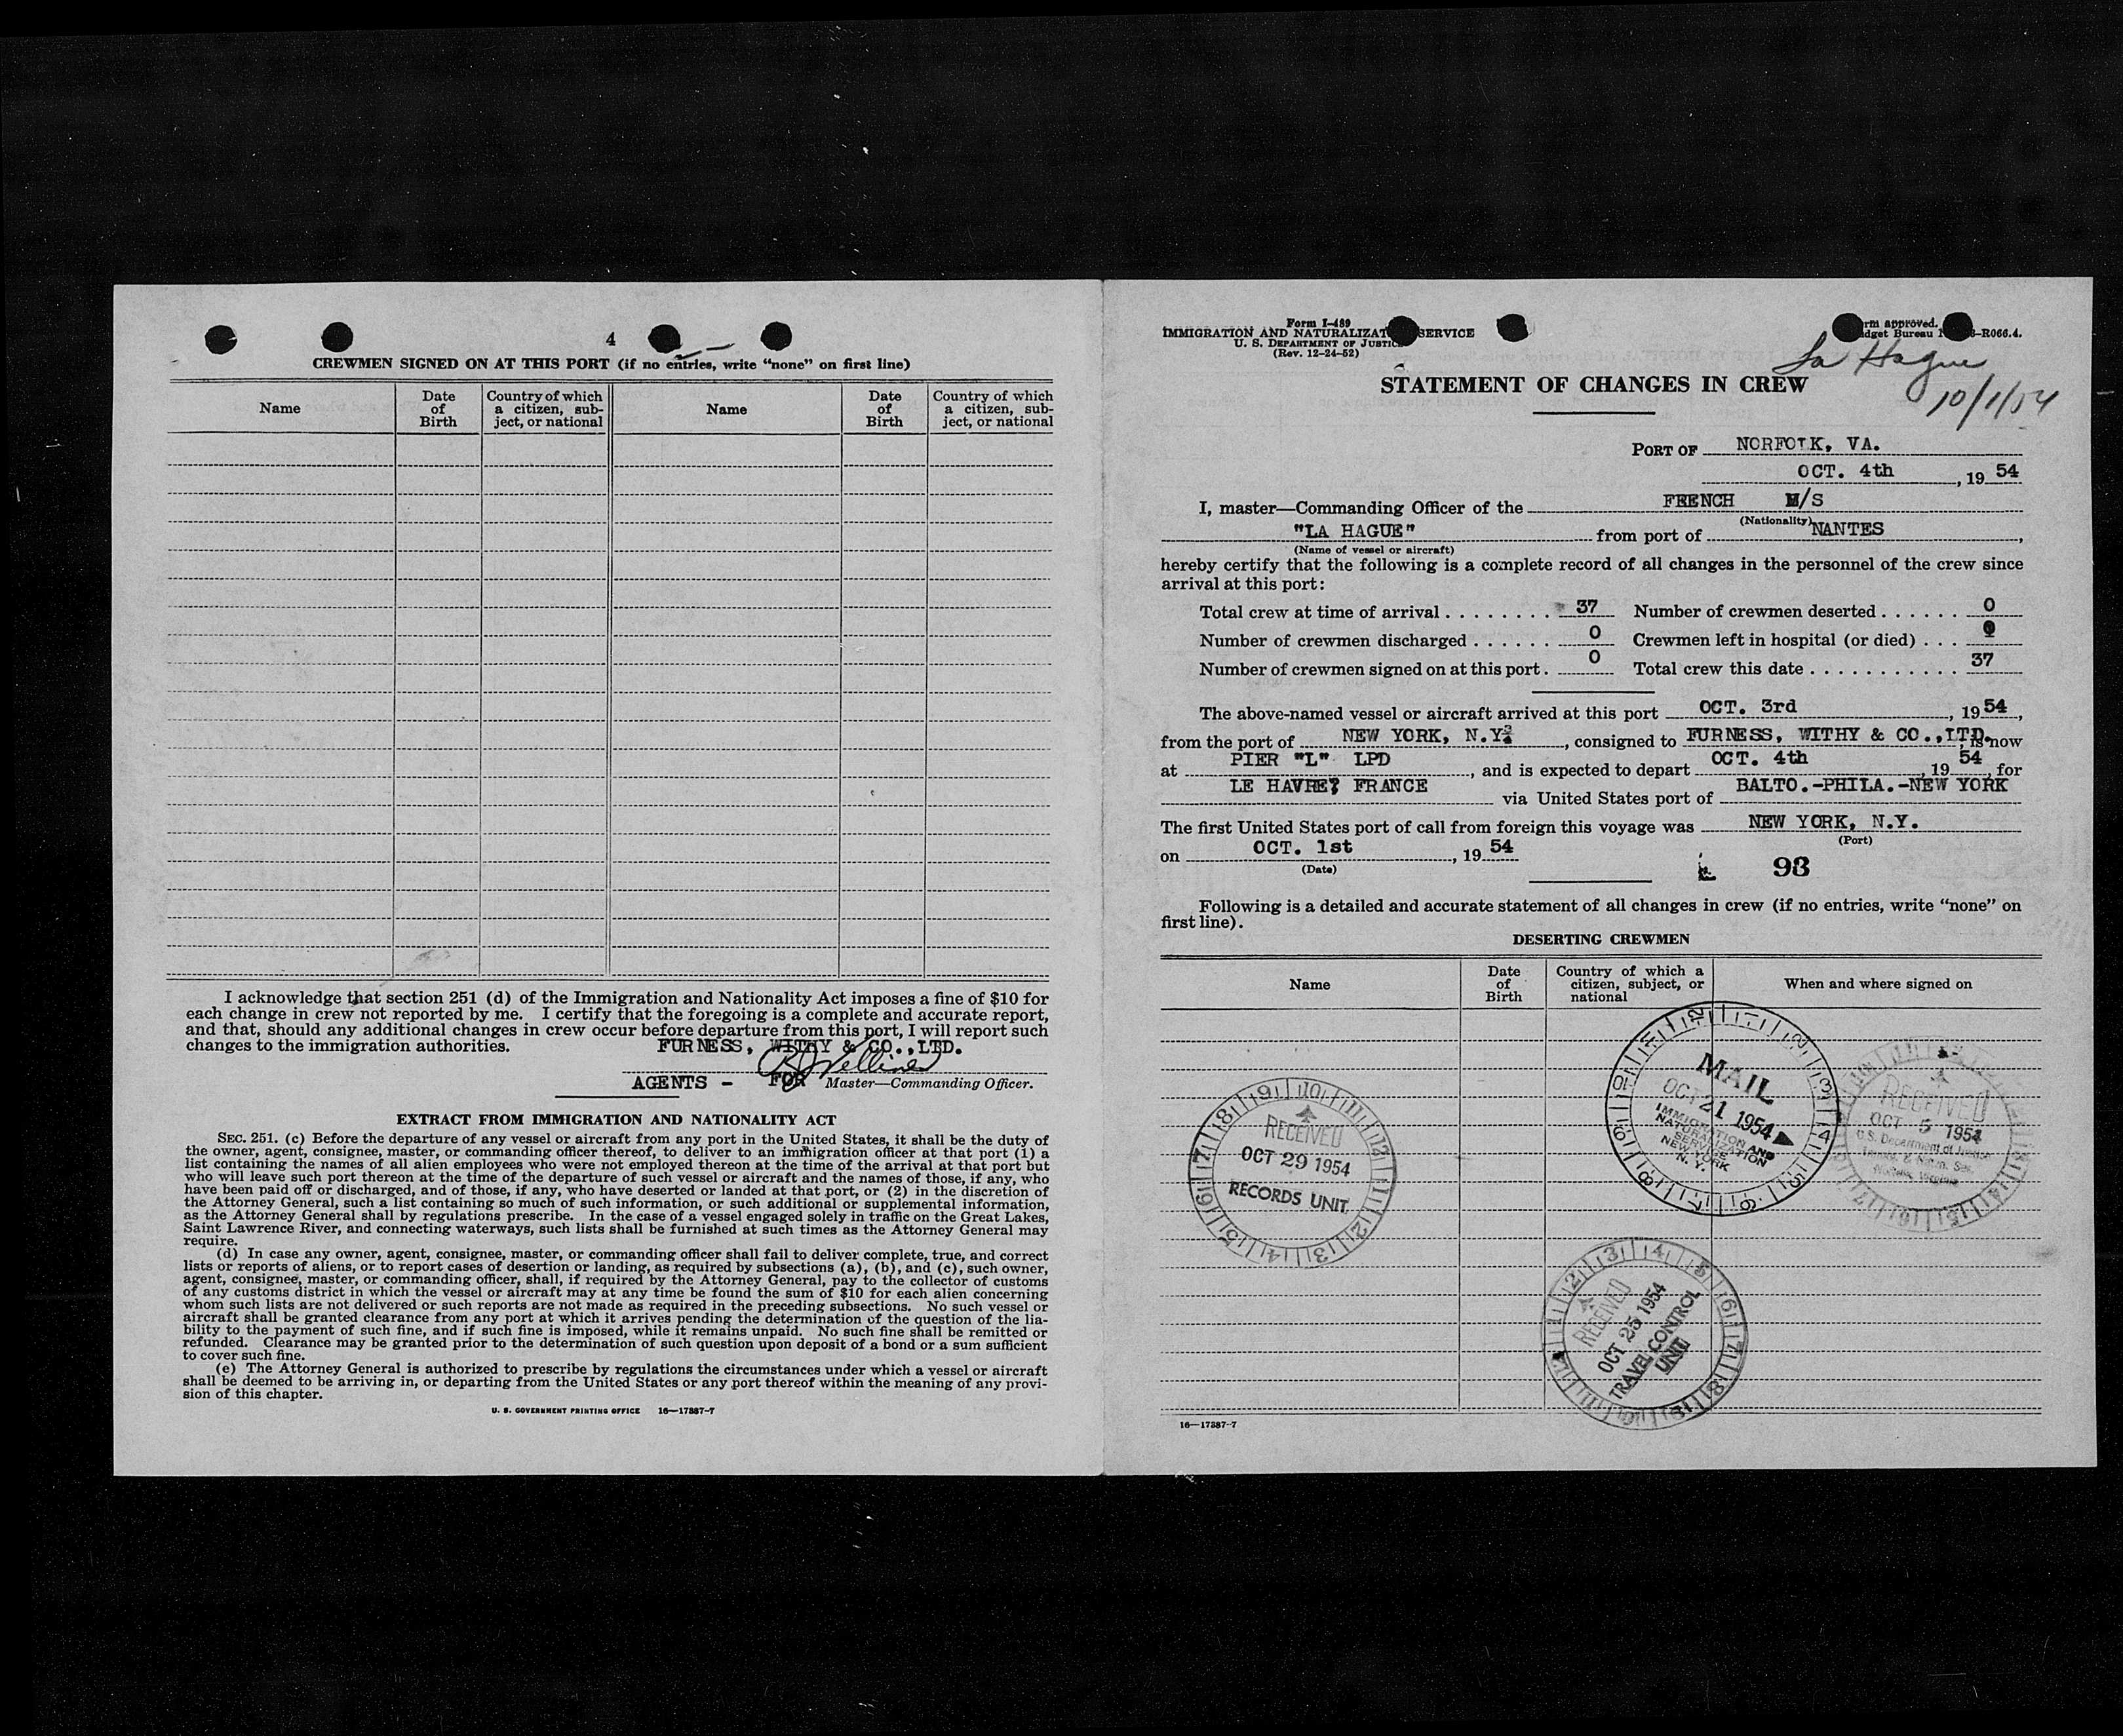 4
CREWMEN SIGNED ON AT THIS PORT (if no entries, write "none" on first line)
Name
Date of Birth
Country of which a citizen, sub-ject, or national
Name
Date of Birth
Country of which a citizen, sub-ject, or national
I acknowledge that section 251 (d) of the Immigration and Nationality Act imposes a fine of $10 for
each change in crew not reported by me. I certify that the foregoing is a complete and accurate report,
and that, should any additional changes in crew occur before departure from this port, I will report such
changes to the immigration authorities.
FURNESS, WITHY & CO., LTD.
AGENTS - FOR Master—Commanding Officer.
EXTRACT FROM IMMIGRATION AND NATIONALITY ACT
SEC. 251. (c) Before the departure of any vessel or aircraft from any port in the United States, it shall be the duty of
the owner, agent, consignee, master, or commanding officer thereof, to deliver to an immigration officer at that port (1) a
list containing the names of all alien employees who were not employed thereon at the time of the arrival at that port but
who will leave such port thereon at the time of the departure of such vessel or aircraft and the names of those, if any, who
have been paid off or discharged, and of those, if any, who have deserted or landed at that port, or (2) in the discretion of
the Attorney General, such a list containing so much of such information, or such additional or supplemental information,
as the Attorney General shall by regulations prescribe. In the case of a vessel engaged solely in traffic on the Great Lakes,
Saint Lawrence River, and connecting waterways, such lists shall be furnished at such times as the Attorney General may
require.
(d) In case any owner, agent, consignee, master, or commanding officer shall fail to deliver complete, true, and correct
lists or reports of aliens, or to report cases of desertion or landing, as required by subsections (a), (b), and (c), such owner,
agent, consignee, master, or commanding officer, shall, if required by the Attorney General, pay to the collector of customs
of any customs district in which the vessel or aircraft may at any time be found the sum of $10 for each alien concerning
whom such lists are not delivered or such reports are not made as required in the preceding subsections. No such vessel or
aircraft shall be granted clearance from any port at which it arrives pending the determination of the question of the lia-
bility to the payment of such fine, and if such fine is imposed, while it remains unpaid. No such fine shall be remitted or
refunded. Clearance may be granted prior to the determination of such question upon deposit of a bond or a sum sufficient
to cover such fine.
(e) The Attorney General is authorized to prescribe by regulations the circumstances under which a vessel or aircraft
shall be deemed to be arriving in, or departing from the United States or any port thereof within the meaning of any provi-
sion of this chapter.
U. S. GOVERNMENT PRINTING OFFICE 16—17387-7
Form I-489
IMMIGRATION AND NATURALIZAT SERVICE
U. S. DEPARTMENT OF JUSTIC
(Rev. 12-24-52)
rm approved.
dget Bureau -R066.4.
La Hague
10/1/54
STATEMENT OF CHANGES IN CREW
PORT OF NORFOTK, VA.
OCT. 4th, 19 54
I, master—Commanding Officer of the FEENCH M/S
(Nationality)
"LA HAGUE" from port of NANTES,
(Name of vessel or aircraft)
hereby certify that the following is a complete record of all changes in the personnel of the crew since
arrival at this port:
Total crew at time of arrival . . . . . . . . . 37 Number of crewmen deserted . . . . . . . 0
Number of crewmen discharged . . . . . . 0 Crewmen left in hospital (or died) . . . 0
Number of crewmen signed on at this port . 0 Total crew this date . . . . . . . . . . . 37
The above-named vessel or aircraft arrived at this port OCT. 3rd, 19 54,
from the port of NEW YORK, N.Y., consigned to FURNESS, WITHY & CO.,LTD., is now
at PIER "L" LPD, and is expected to depart OCT. 4th, 19 54, for
LE HAVRE? FRANCE via United States port of BALTO.-PHILA.-NEW YORK
The first United States port of call from foreign this voyage was NEW YORK, N.Y.
(Port)
on OCT. 1st, 19 54
(Date)
98
Following is a detailed and accurate statement of all changes in crew (if no entries, write "none" on
first line).
DESERTING CREWMEN
Name
Date of Birth
Country of which a citizen, subject, or national
When and where signed on
MAIL
OCT 21 1954
IMMIGRATION AND
NATURALIZATION
SERVICE
NEW YORK
N. Y.
RECEIVED
OCT 5 1954
U.S. Department of Justice
Norfolk, Virginia
RECEIVED
OCT 29 1954
RECORDS UNIT
RECEIVED
OCT 25 1954
TRAVEL CONTROL
UNIT
16—17387-7